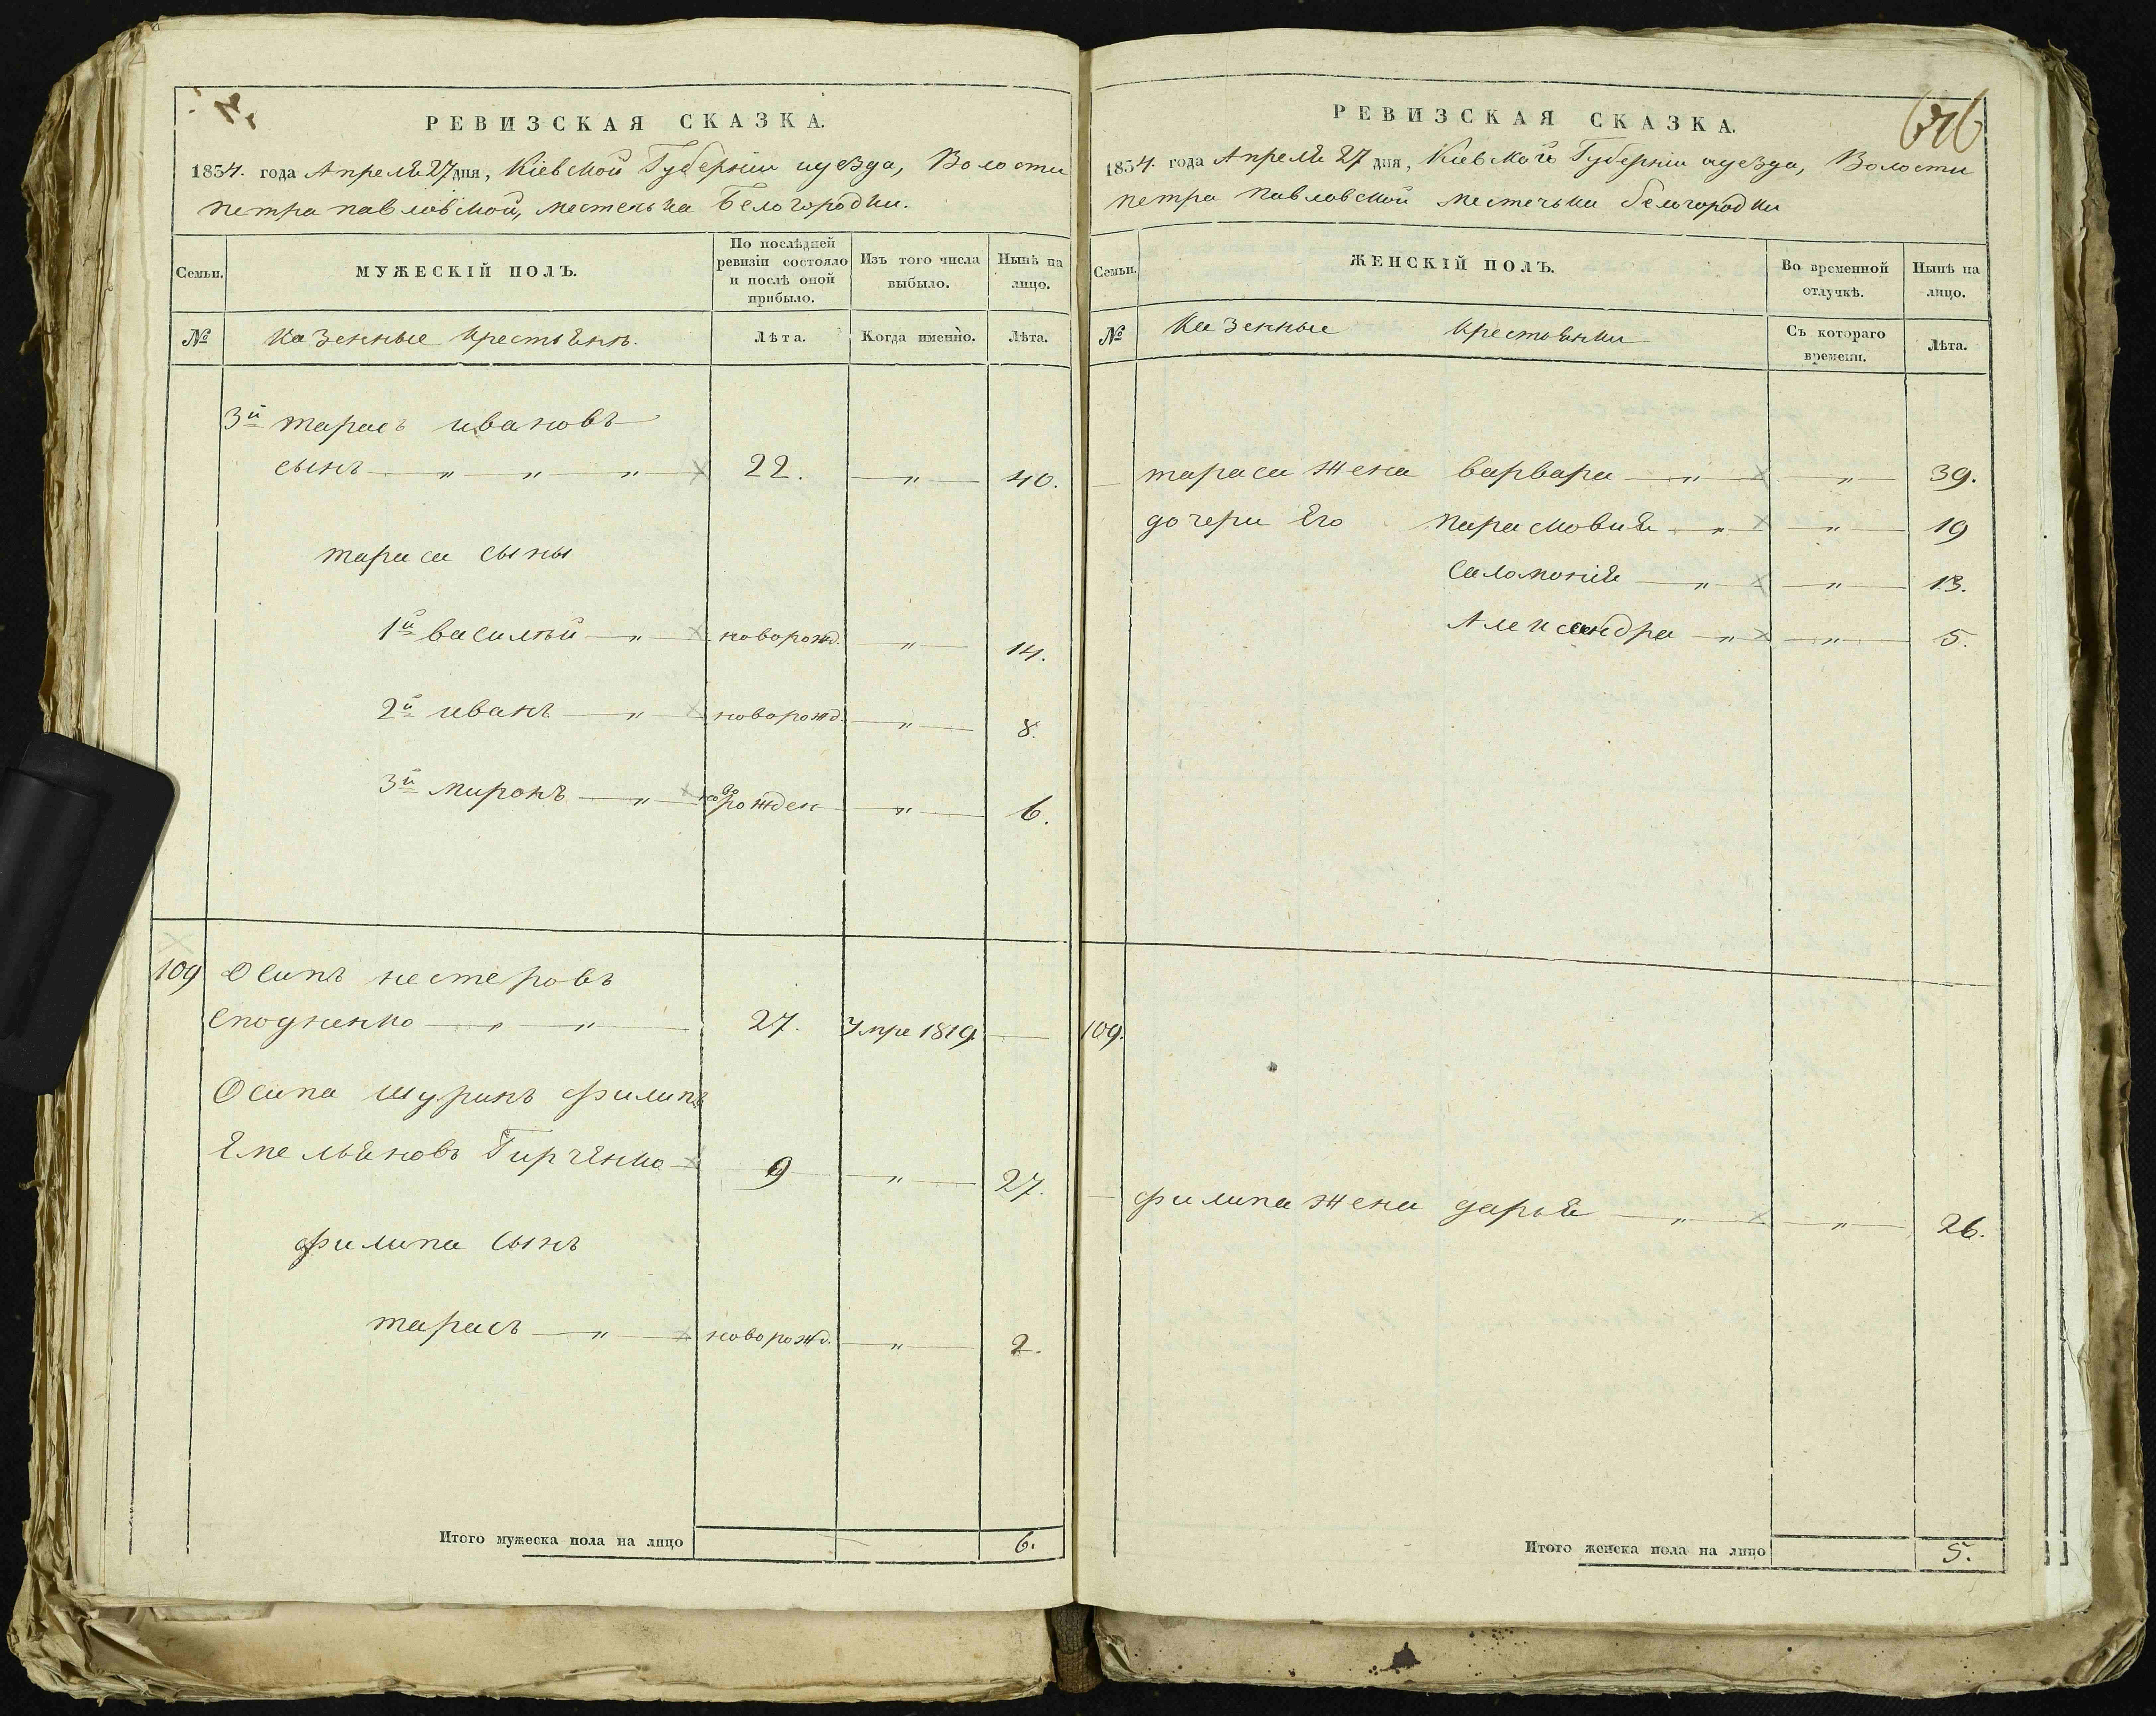 РЕВИЗСКАЯ СКАЗКА.
1854. года Апреля 27 дня, Кіевской Губерніи и уезда, Волости
петра павловской, местечка Белогородки.
Семьи.
МУЖЕСКІЙ ПОЛЪ.
По послѣдней ревизіи состояло и послѣ оной прибыло.
Изъ того числа выбыло.
Нынѣ на лицо.
№ казенные крестьяни. Лѣта. Когда именно. Лѣта.
3й тарасъ ивановъ
сынъ — „ — „ — „ — × 22. — „ — 40.
тараса сыны
1й василий — „ — × новорожд. — „ — 14.
2й иванъ — „ — × новорожд. — „ — 8.
3й миронъ — „ — × новорожден — „ — 6.
109 Осипъ нестеровъ
— „ — „ — 27. Умре 1819. —
Осипа шуринъ филипъ
Емельяновъ Гирченко — × 9 — „ — 27.
филипа сынъ
тарасъ — „ — × новорожд. — „ — 2.
Итого мужеска пола на лицо 6.
РЕВИЗСКАЯ СКАЗКА.
1854. года Апреля 27 дня, Кіевской Губерніи и уезда, Волости
петра павловской местечки белогородки
Семьи.
ЖЕНСКІЙ ПОЛЪ.
Во временной отлучкѣ.
Нынѣ на лицо.
№ Казенные крестьянки Съ котораго времени. Лѣта.
— тараса жена варвара — „ — × — „ — 39.
дочери Его парасковия — „ — × — „ — 19
Саломонія — „ — × — „ — 13.
Александра — „ — × — „ — 5.
109.
— филипа жена дарья — „ — × — „ — 26.
Итого женска пола на лицо 5.